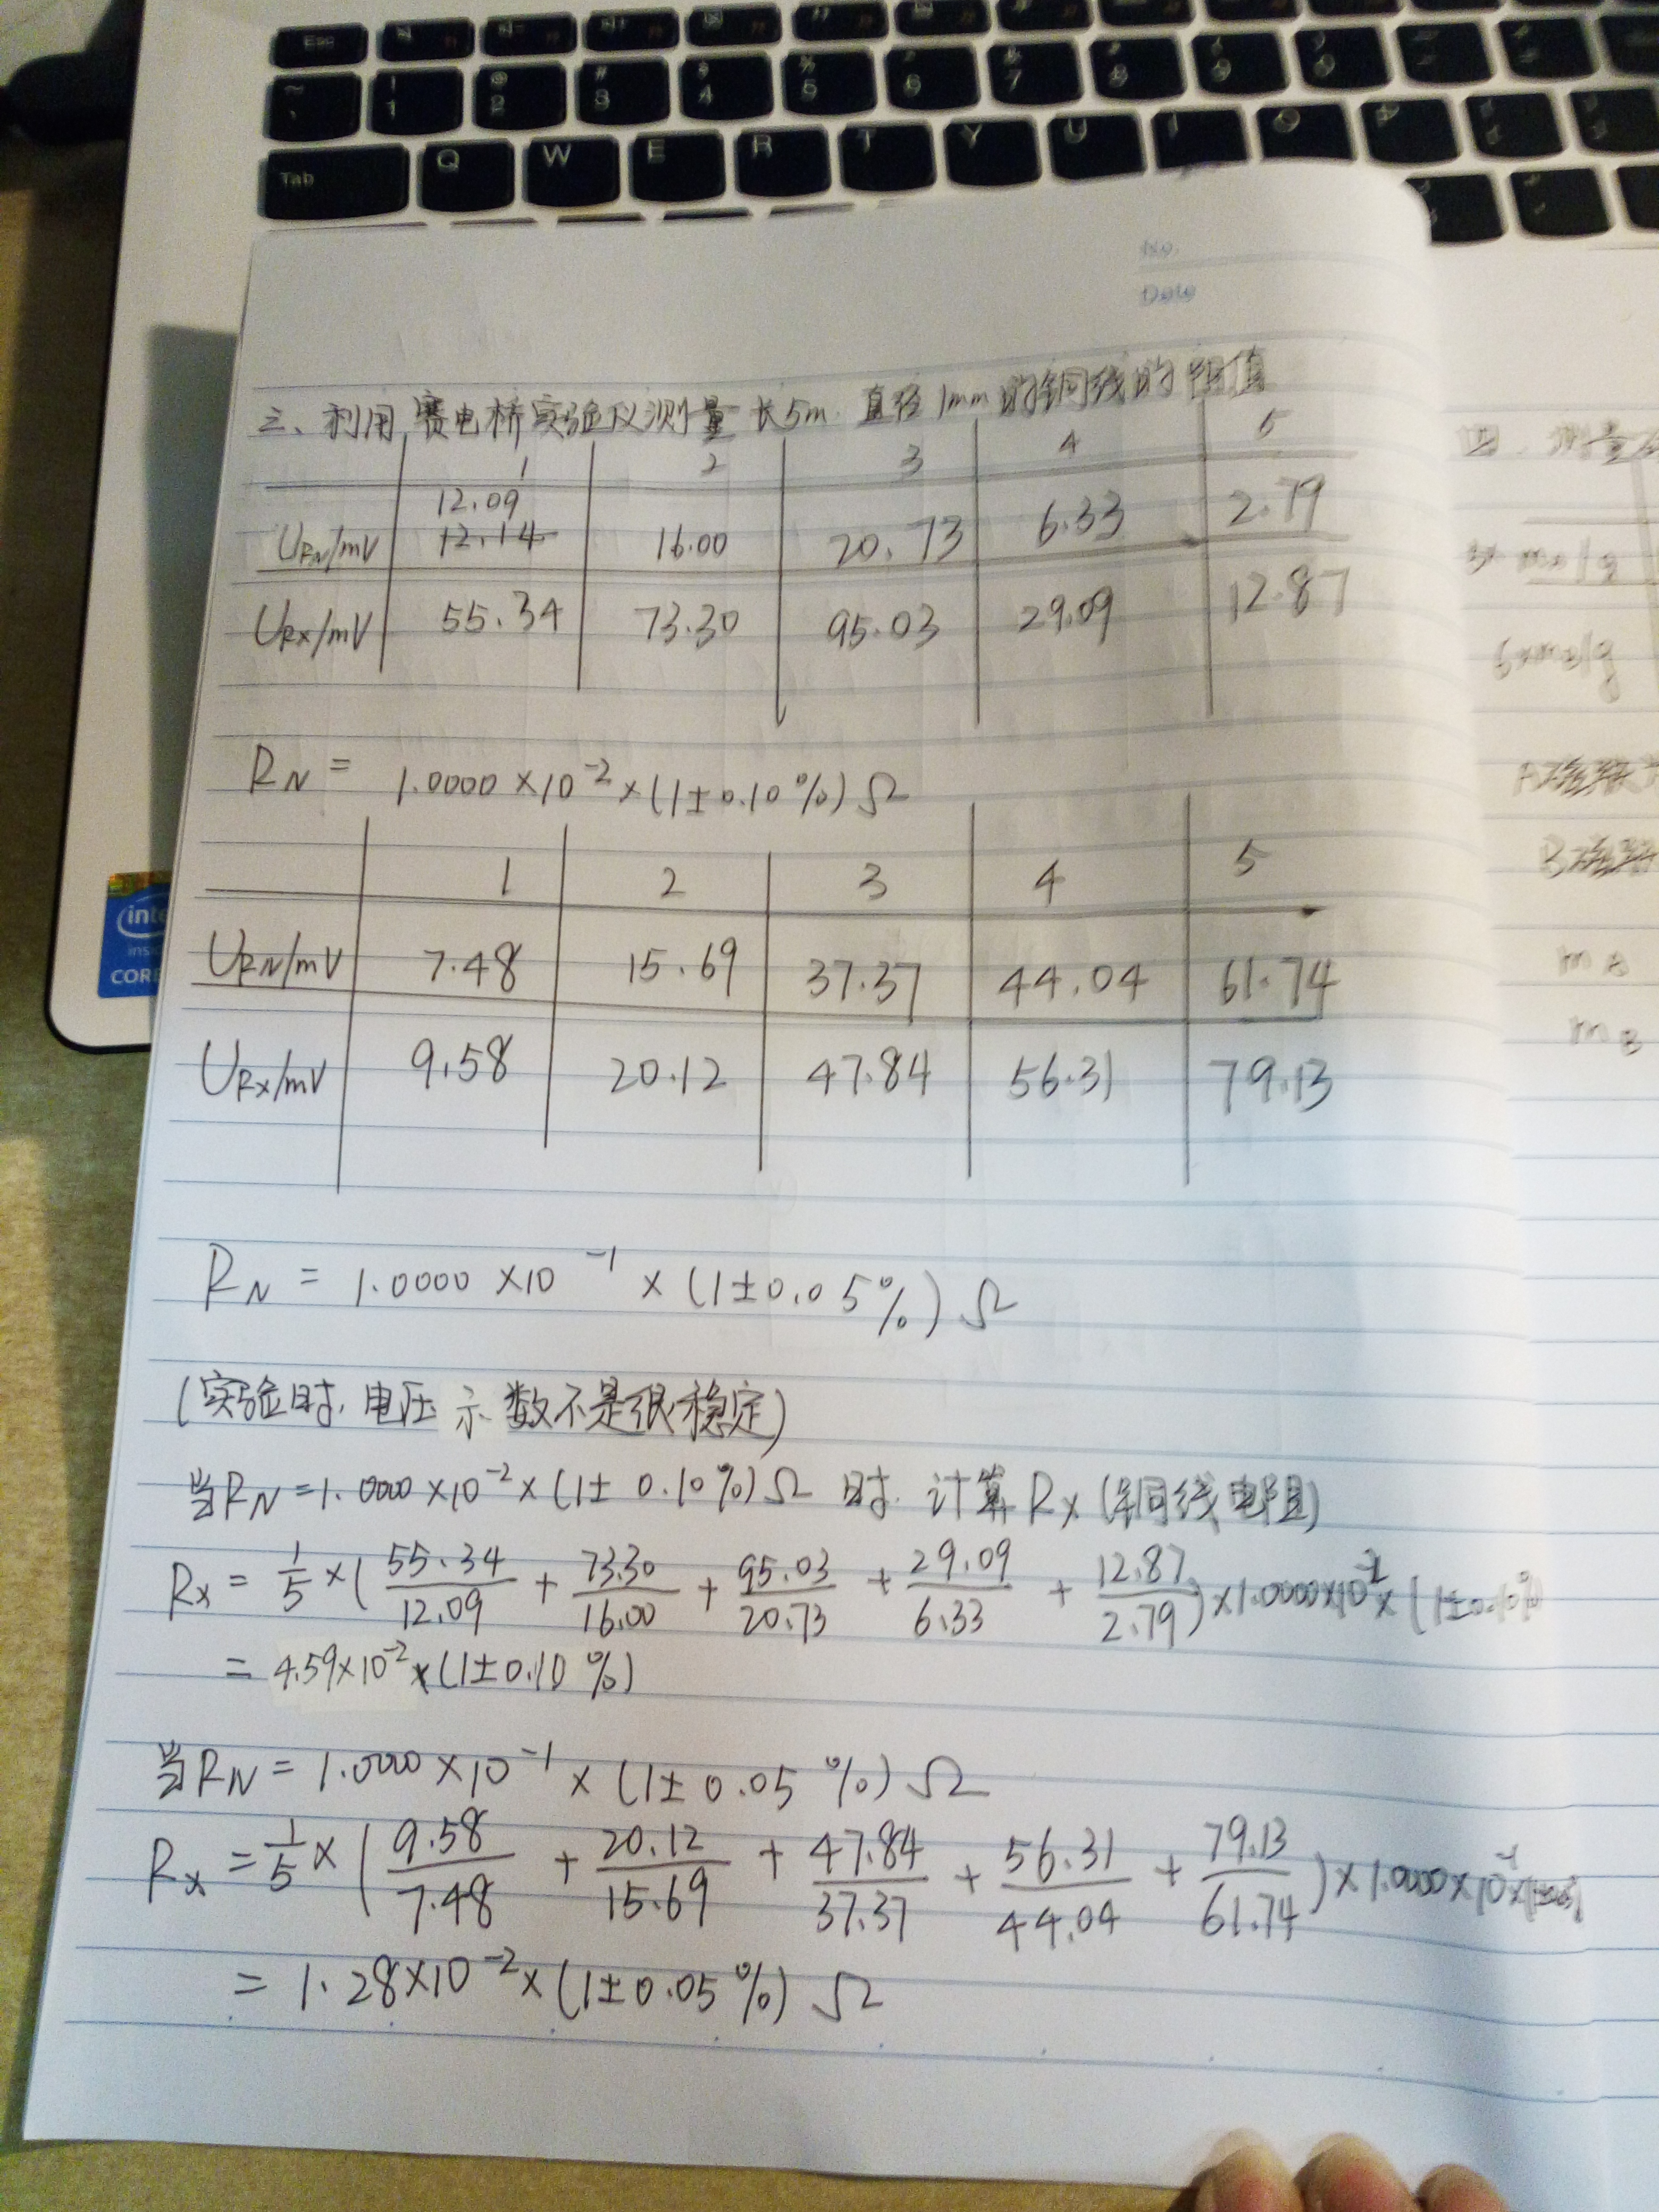 Esc
1 2 3 4 5 6 7 8 9 0
Tab Q W E R T Y U I O P
No.
Date
三、利用赛电桥实验仪测量长5m 直径1mm的铜线的阻值
1 2 3 4 5
12.09
URN/mV 12.14 16.00 20.73 6.33 2.79
URx/mV 55.34 73.30 95.03 29.09 12.87
RN = 1.0000×10⁻²×(1±0.10%)Ω
1 2 3 4 5
URN/mV 7.48 15.69 37.37 44.04 61.74
URx/mV 9.58 20.12 47.84 56.31 79.13
RN = 1.0000×10⁻¹×(1±0.05%)Ω
(实验时,电压示数不是很稳定)
当RN=1.0000×10⁻²×(1±0.10%)Ω时 计算Rx(铜线电阻)
Rx = 1/5×(55.34/12.09 + 73.30/16.00 + 95.03/20.73 + 29.09/6.33 + 12.87/2.79)×1.0000×10⁻²×(1±0.10%)
= 4.59×10⁻²×(1±0.10%)
当RN=1.0000×10⁻¹×(1±0.05%)Ω
Rx = 1/5×(9.58/7.48 + 20.12/15.69 + 47.84/37.37 + 56.31/44.04 + 79.13/61.74)×1.0000×10⁻¹×
= 1.28×10⁻²×(1±0.05%)Ω
intel
inside
CORE
四、测量
mA
mB